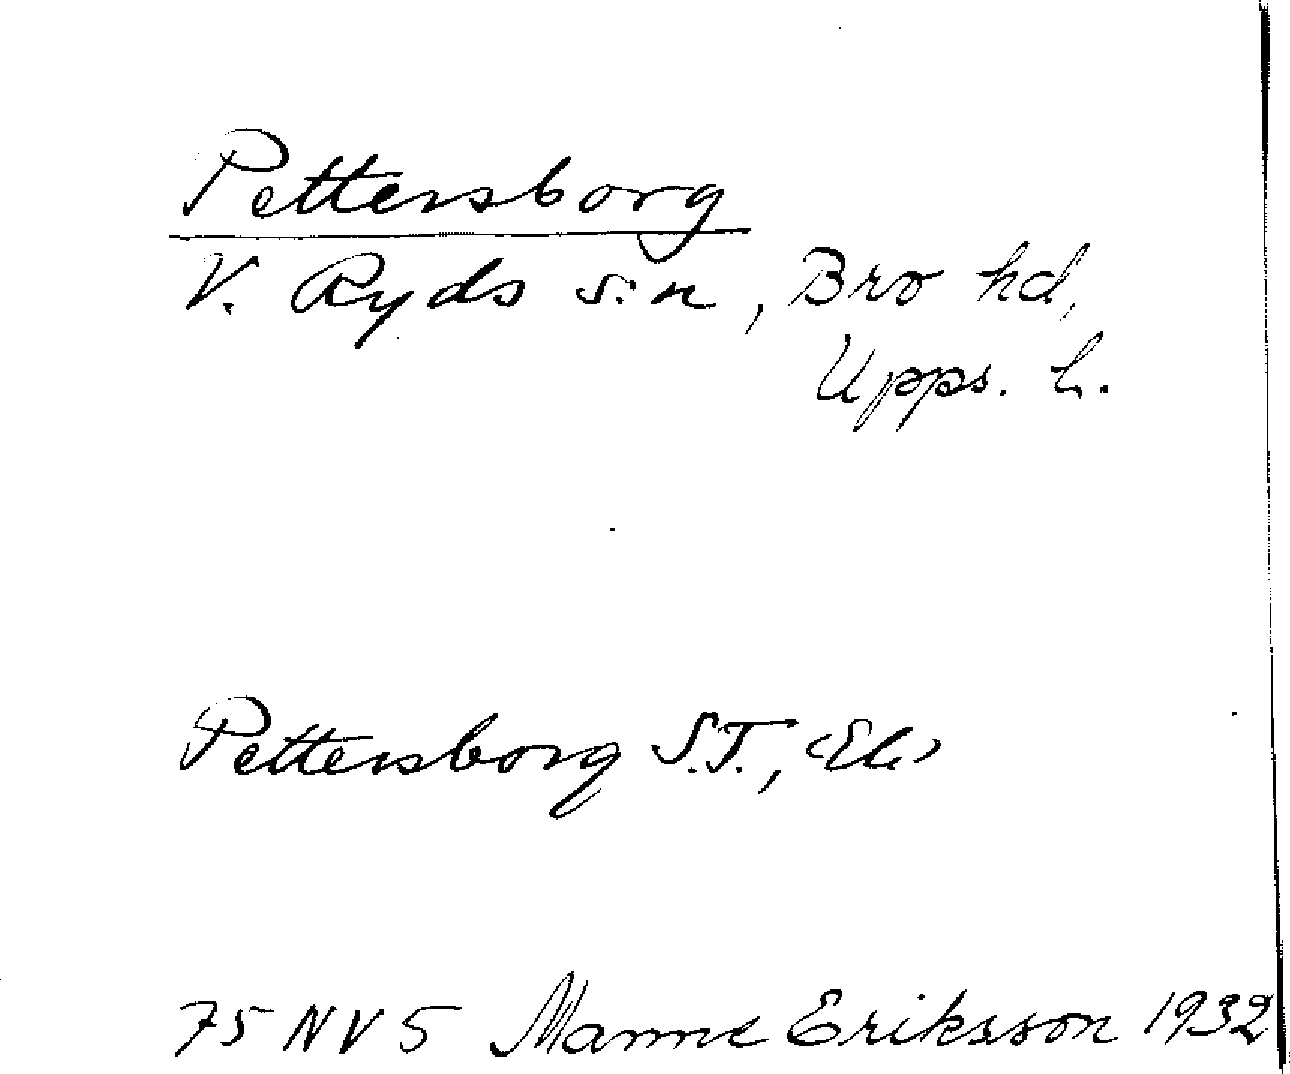 Pettersborg
V. Ryds s:n, Bro hd,
Upps. L.
Pettersborg S.T.,
75 NV 5 Manne Eriksson 1932